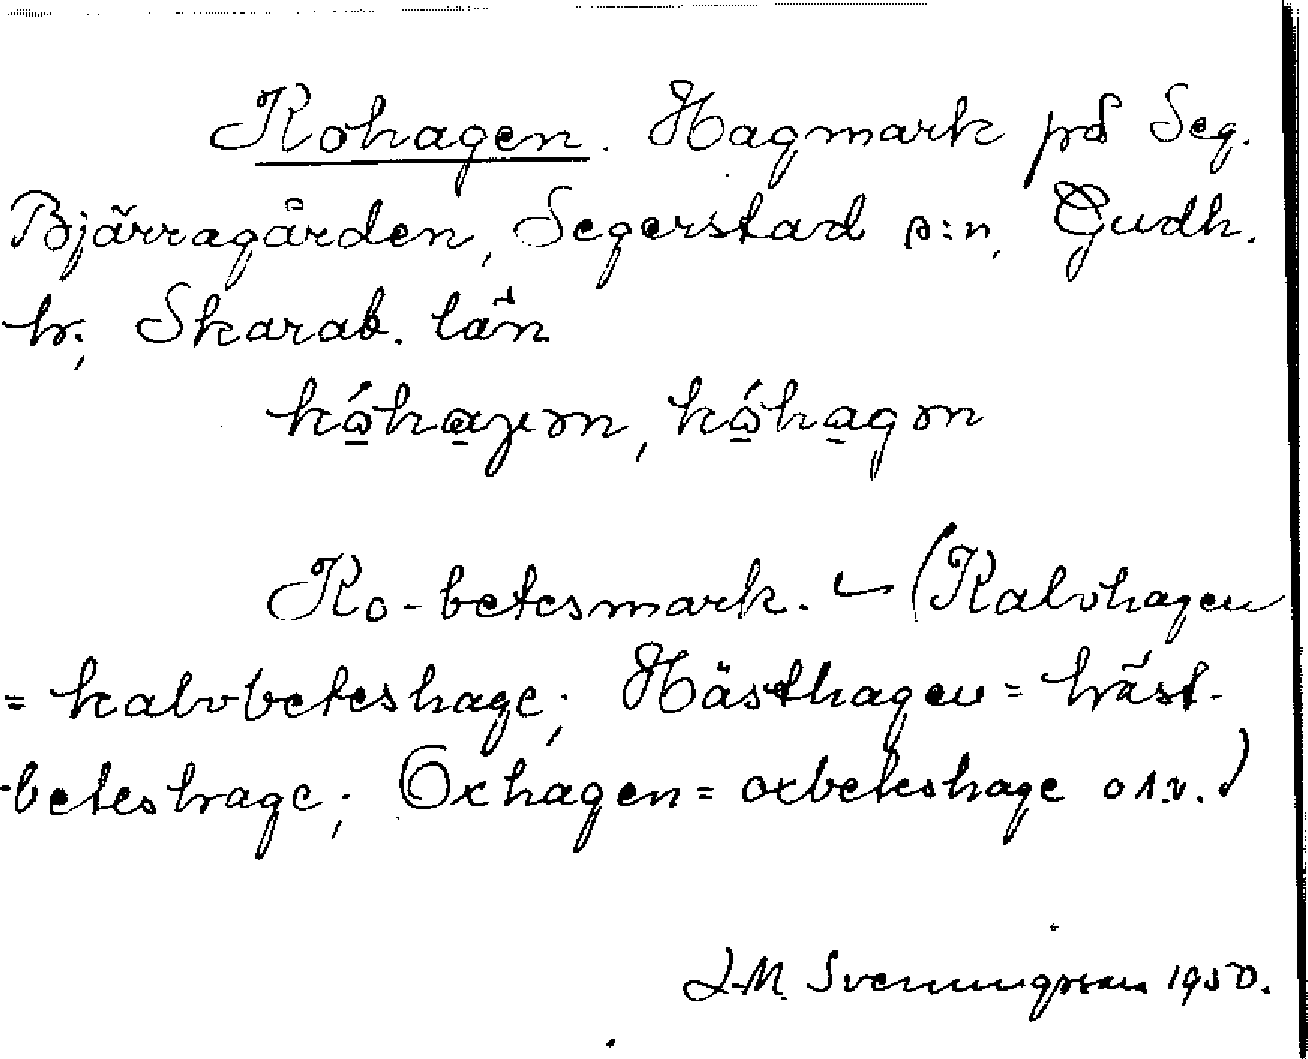 Kohagen. Hagmark på Seg.
Bjärragården, Segerstad s:n, Gudh.
hr, Skarab. län
Ko-betesmark. – (Kalvhagen
= kalvbeteshage; Hästhagen = häst-
-beteshage; Oxhagen = oxbeteshage osv.)
J.M. Svenungsson 1950.